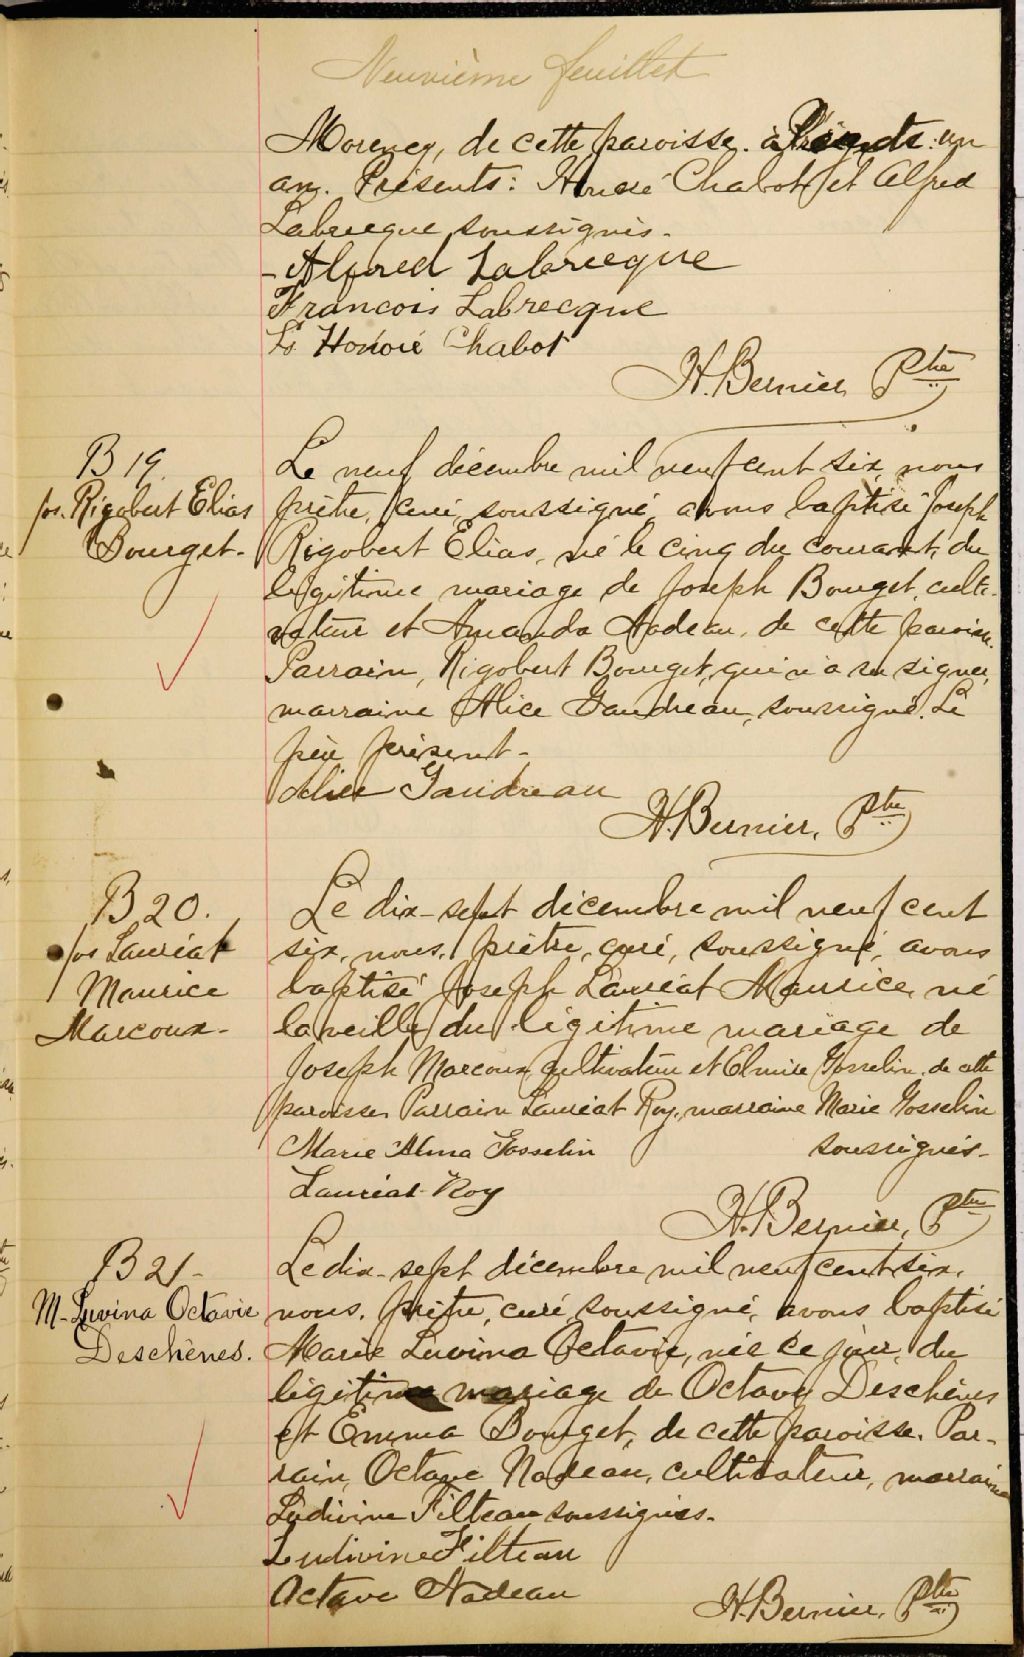 Neuvième feuillet
Morency, de cette paroisse. à un
an. Présents: Honoré Chabot et Alfred
Labrecque soussignés.
Alfred Labrecque
François Labrecque
Honoré Chabot
H. Bernier, Ptre
B 19.
Jos. Rigobert Elias
Bourget.
Le neuf décembre mil neuf cent six, nous
prêtre, curé, soussigné, avons baptisé Joseph
Rigobert Elias, né le cinq du courant, du
légitime mariage de Joseph Bourget, culti-
vateur et Amanda Nadeau, de cette paroisse.
Parrain, Rigobert Bourget, qui n'a su signer,
marraine Alice Gaudreau, soussigné. Le
père présent.
Alice Gaudreau
H. Bernier, Ptre
B 20.
Jos Lauréat
Maurice
Marcoux-
Le dix-sept décembre mil neuf cent
six, nous, prêtre, curé, soussigné, avons
baptisé Joseph Lauréat Maurice, né
la veille du légitime mariage de
Joseph Marcoux cultivateur et Elmire Gosselin, de cette
paroisse. Parrain Lauréat Roy, marraine Marie Gosselin
soussignés.
Marie Alma Gosselin
Lauréat Roy
H. Bernier, Ptre
B 21-
M-Luvina Octavie
Deschênes.
Le dix-sept décembre mil neuf cent six,
nous, prêtre, curé, soussigné, avons baptisé
Marie Luvina Octavie, née ce jour, du
légitime mariage de Octave Deschênes
et Emma Bourget, de cette paroisse. Par-
rain, Octave Nadeau, cultivateur, marraine
Ludivine Filteau soussignés.
Ludivine Filteau
Octave Nadeau
H. Bernier, Ptre